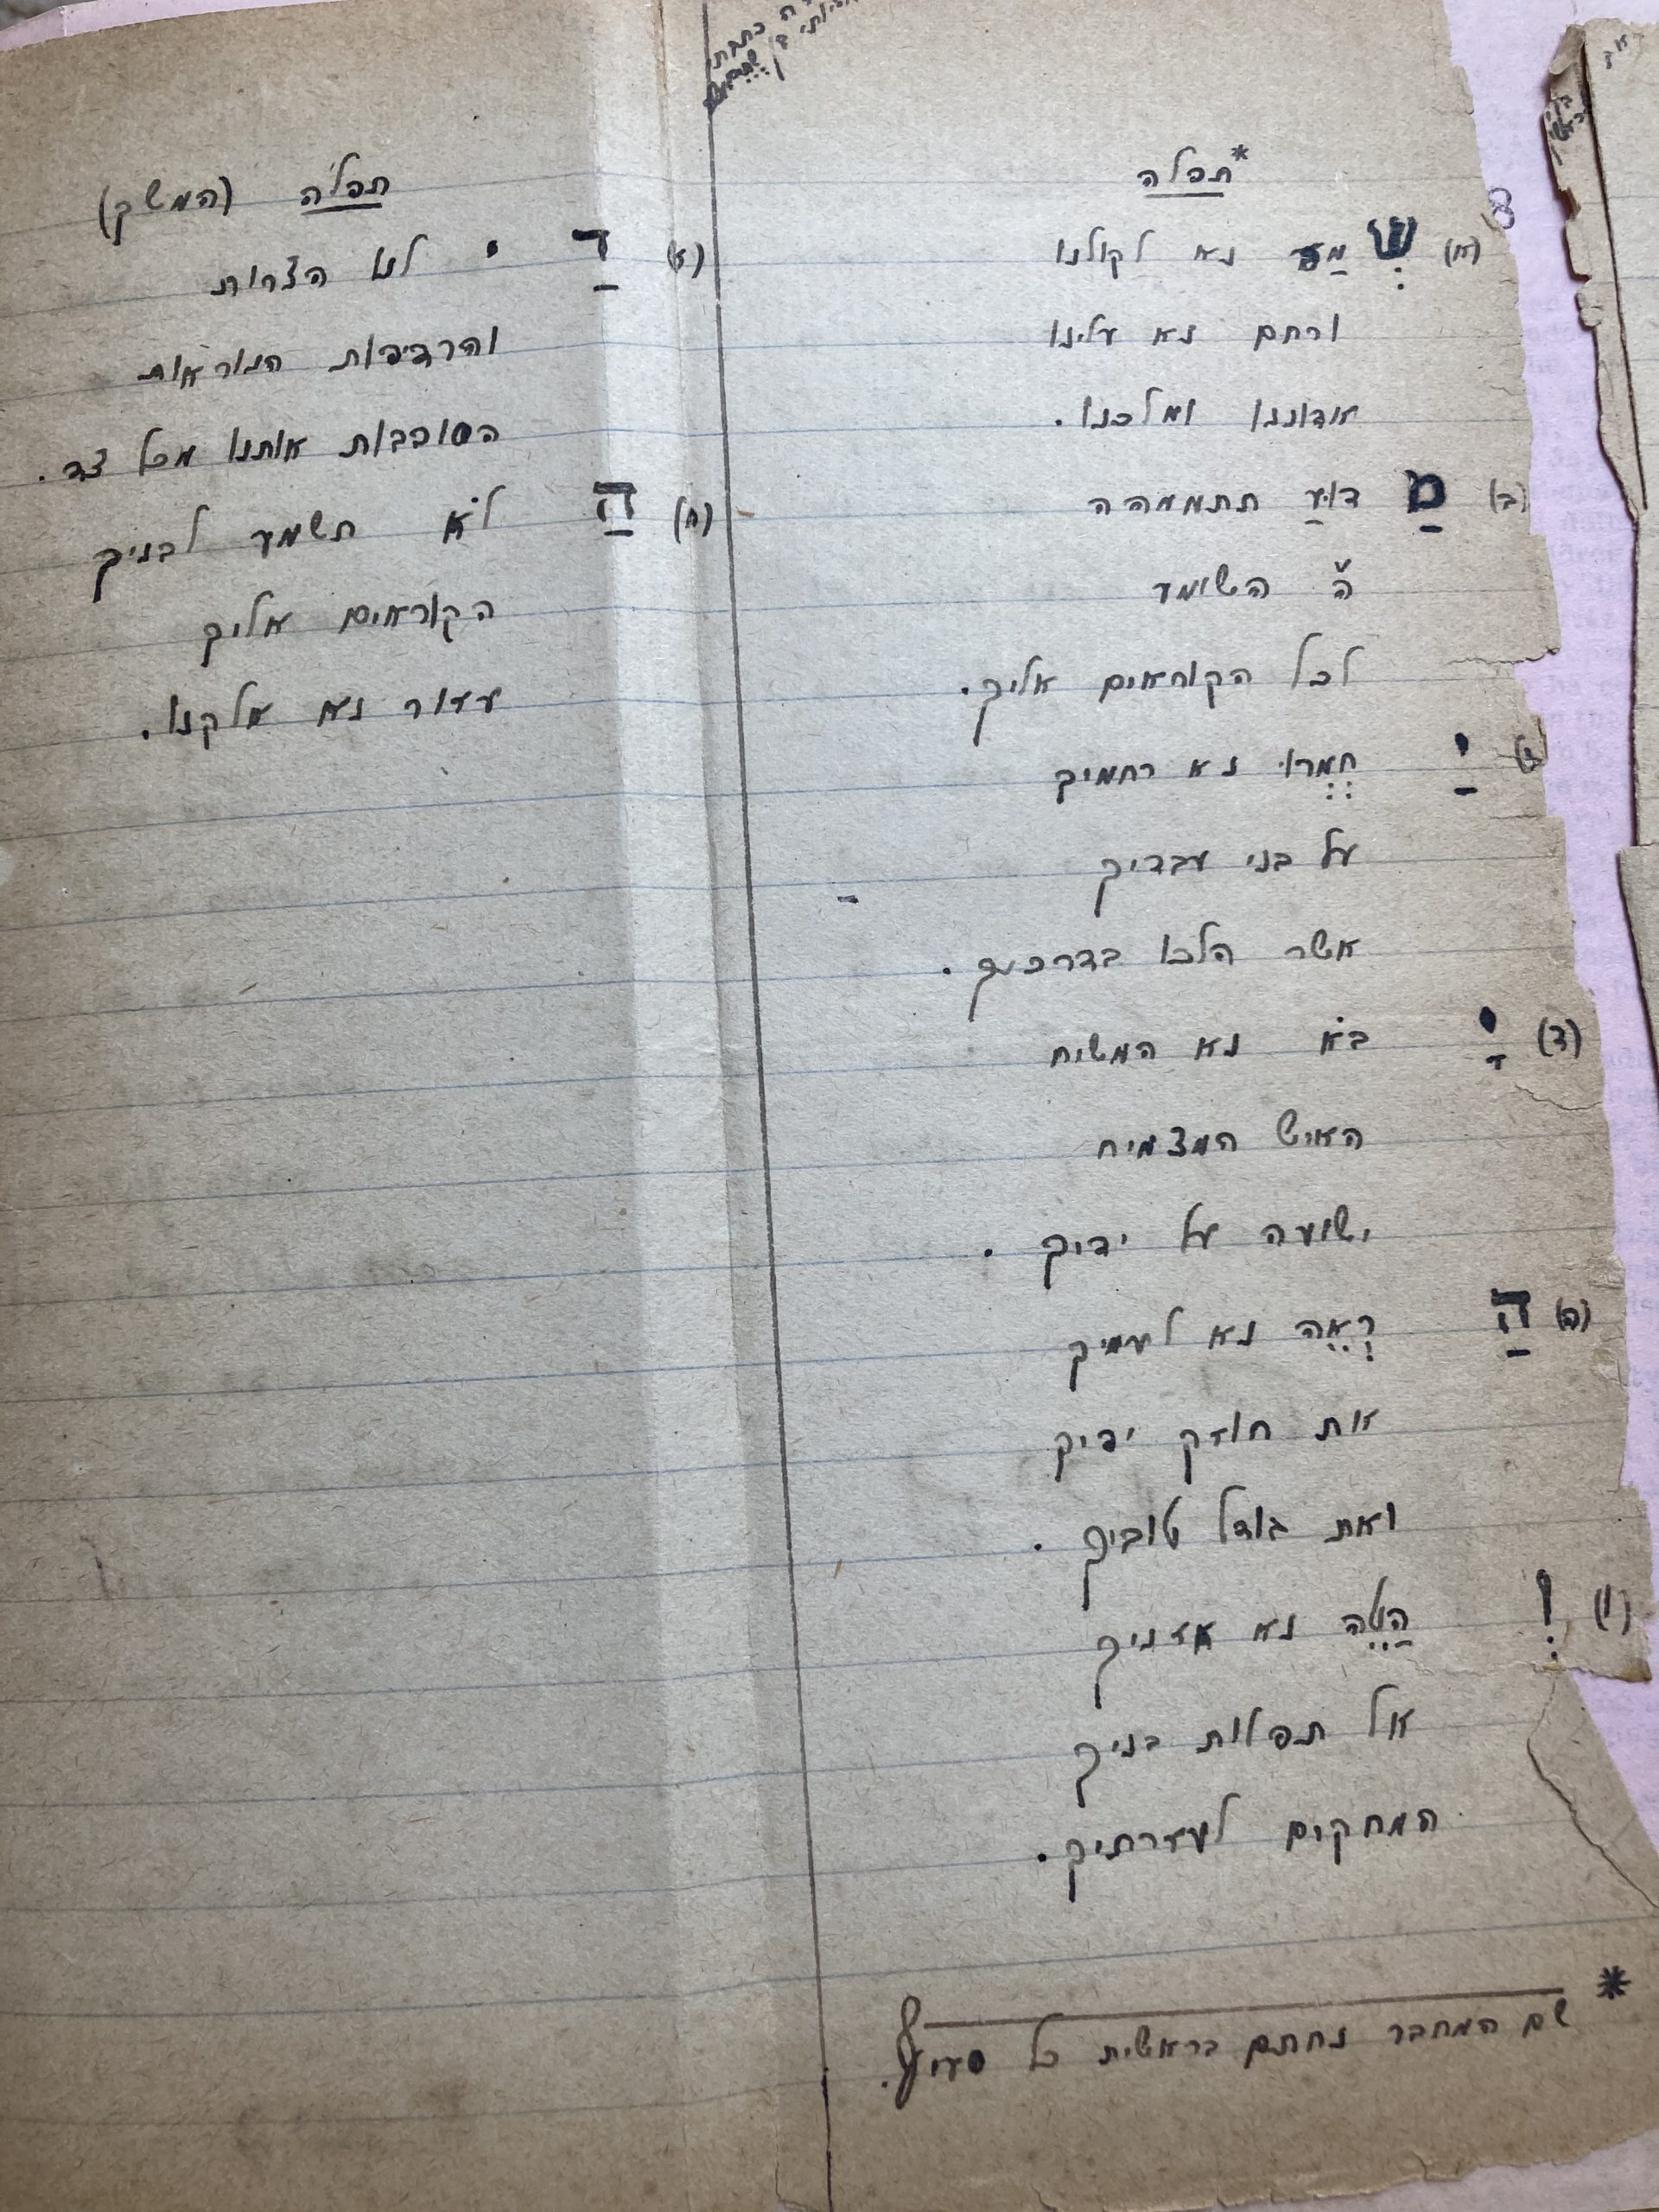 תפלה*
(א) שְׁמַע נא לקולנו
ורחם נא עלינו
אדוננו ומלכנו.
(ב) מַדוּעַ תתמהמה
ה' השומע
לכל הקוראים אליך.
(ג) יַחְמְרוּ נא רחמיך
על בני עבדיך
אשר הלכו בדרכיך.
(ד) יָבֹא נא המשיח
האיש המצמיח
ישועה על ידיך.
(ה) הַרְאֵה נא לעמיך
את חוזק ידיך
ואת גודל טוביך.
(ו) וְהַטֵה נא אזניך
אל תפלות בניך
המחקים לעזרתיך.
* שם המחבר נחתם בראשית כל סעיף.
תפלה (המשך)
(ז) דַי לנו הצרות
והרדיפות הנוראות
הסובבות אותנו מכל צד.
(ח) הַלֹא תשמע לבניך
הקוראים אליך
עזור נא אלקנו.